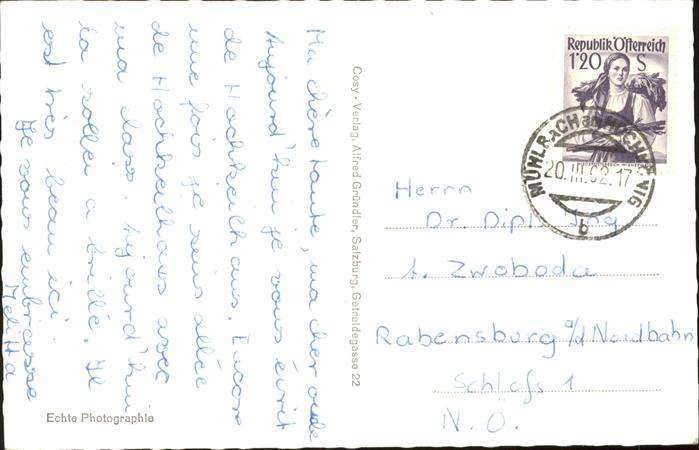 Ma chère tante, ma cher oncle
Aujourd'hui je vous écrit
de Hochkeilhaus. Encore
une fois je suis allée
de Hochkeilhaus avec
ma class. Aujourd'hui
la soleil a brillé. Il
est très beau ici.
Je vous embrasse
Echte Photographie
Cosy-Verlag, Alfred Gründler, Salzburg, Getreidegasse 22
Republik Österreich
1'20 S
MÜHLBACH am HOCHKÖNIG
20.III.62.17
b
Herrn
Dr. Dipl. Ing.
Zwoboda
Rabensburg a/d Nordbahn
Schloß 1
N.Ö.